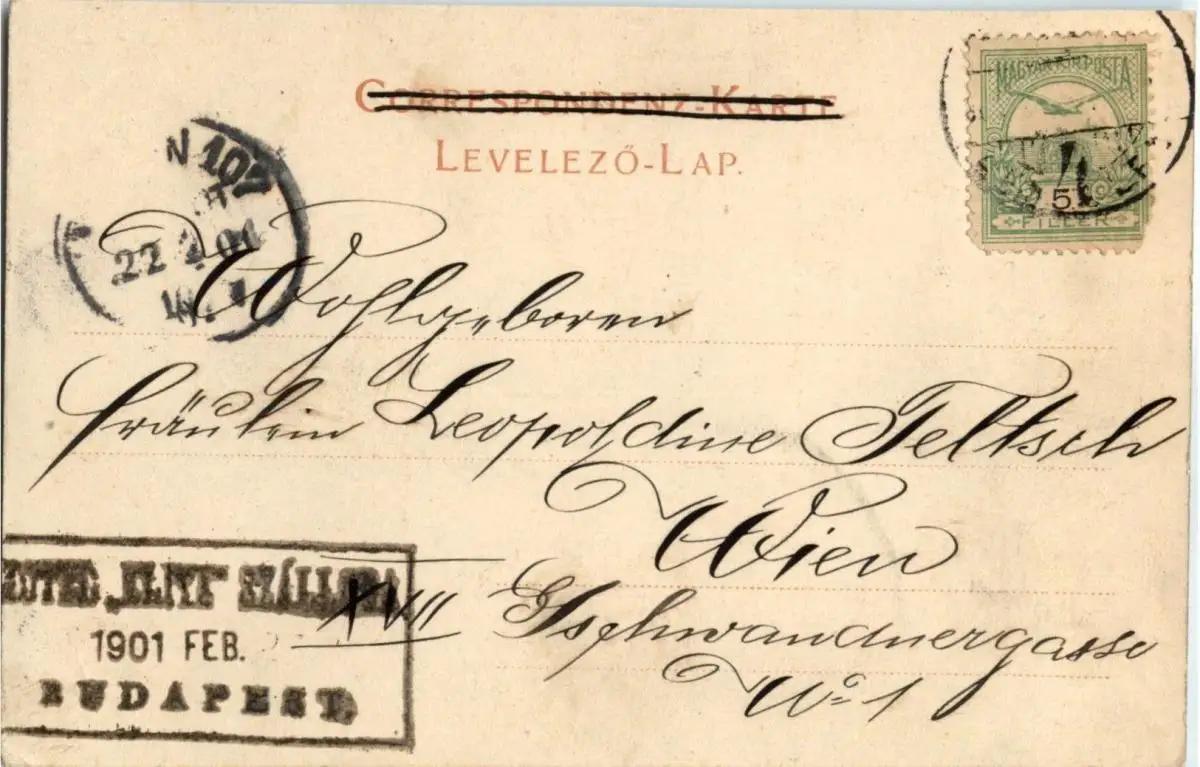 CORRESPONDENZ-KARTE
LEVELEZŐ-LAP.
MAGYAR KIR. POSTA
5
FILLÉR
N 107
22 2 01
Wohlgeboren
Fräulein Leopoldine Teltsch
Wien
XVII Gschwandnergasse
No 1
SZÁLLODA
1901 FEB.
BUDAPEST.